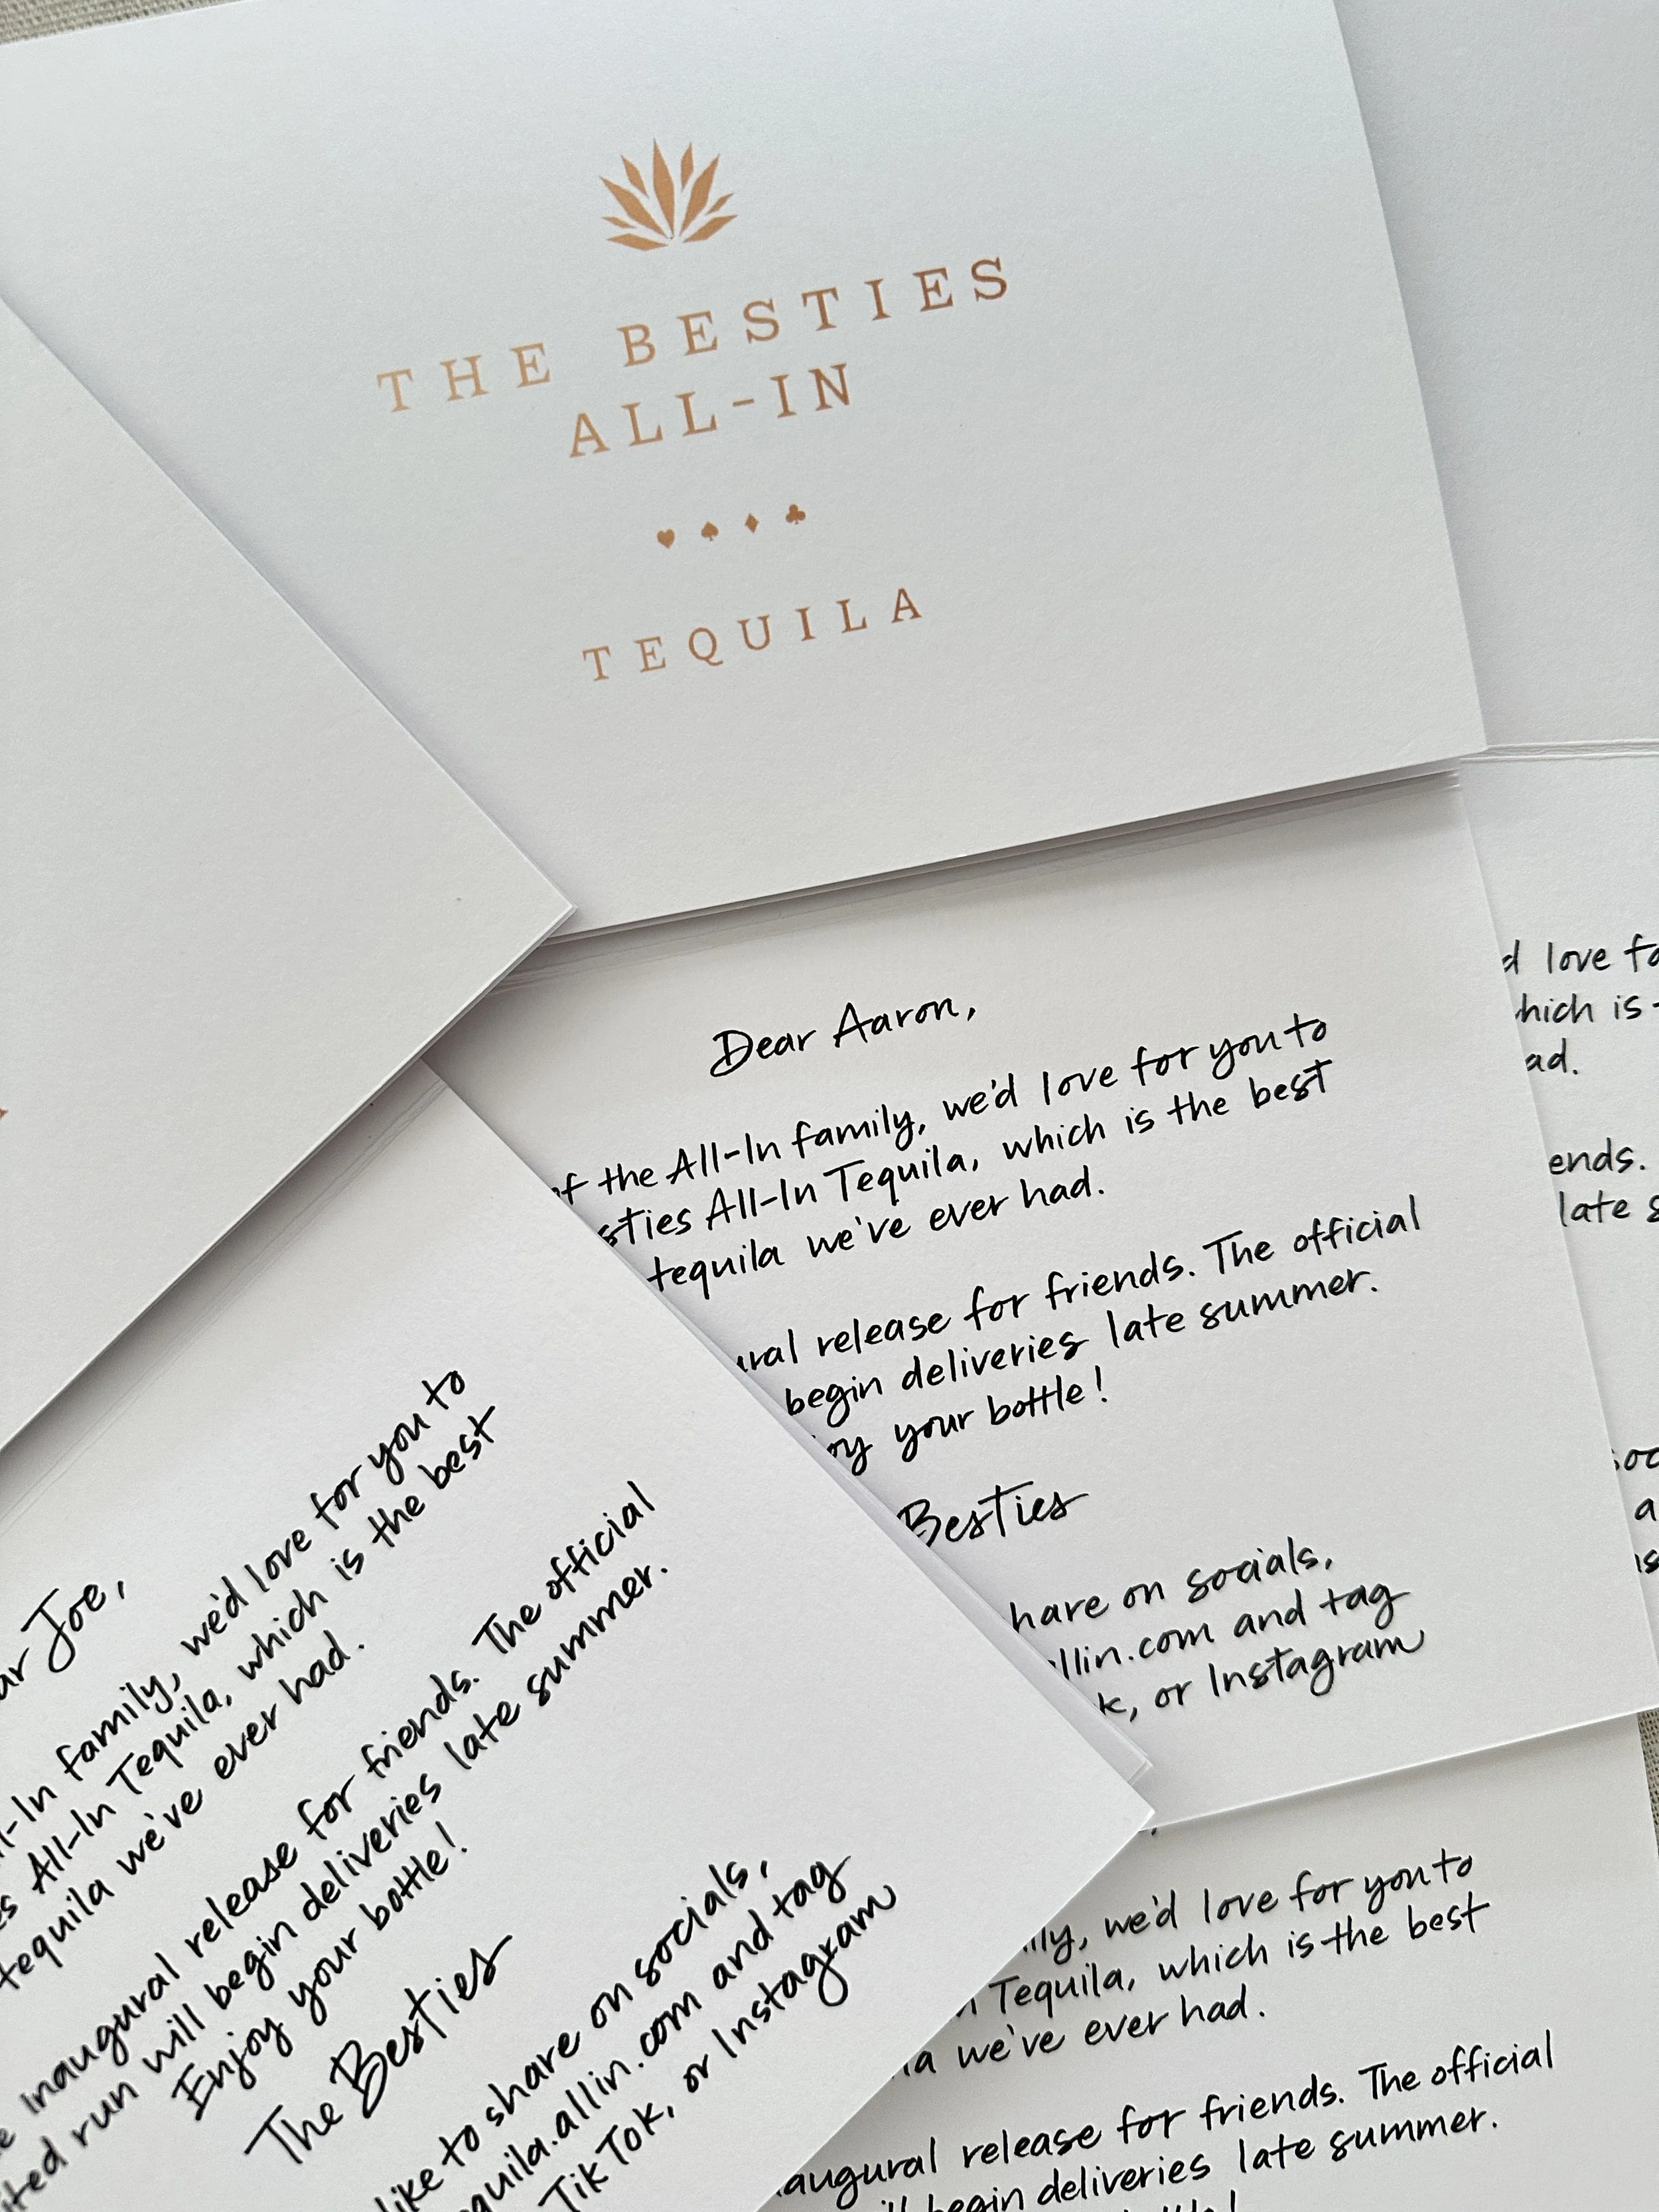 THE BESTIES
ALL-IN
♥ ♠ ♦ ♣
TEQUILA
Dear Aaron,
of the All-In family, we'd love for you to
sties All-In Tequila, which is the best
tequila we've ever had.
ural release for friends. The official
begin deliveries late summer.
oy your bottle!
Besties
hare on socials,
llin.com and tag
k, or Instagram
d love fo
hich is
ad.
ends.
late s
soc
a
is
ar Joe,
l-In family, we'd love for you to
es All-In Tequila, which is the best
tequila we've ever had.
inaugural release for friends. The official
ited run will begin deliveries late summer.
Enjoy your bottle!
The Besties
like to share on socials,
quila.allin.com and tag
TikTok, or Instagram
ily, we'd love for you to
n Tequila, which is the best
la we've ever had.
augural release for friends. The official
ill begin deliveries late summer.